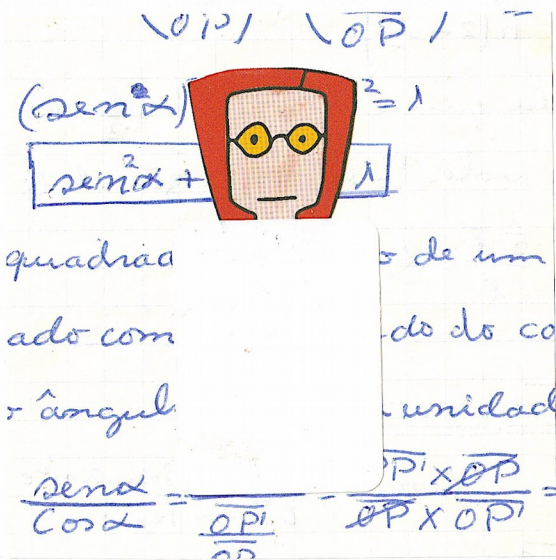 (OP) (OP) =
(sen²α) ² = 1
sen²α + 1
quadrad o de um
ado com do do co
ângul unidad
senα / Cosα = / OP' / OP = PP' x OP / OP x OP' =